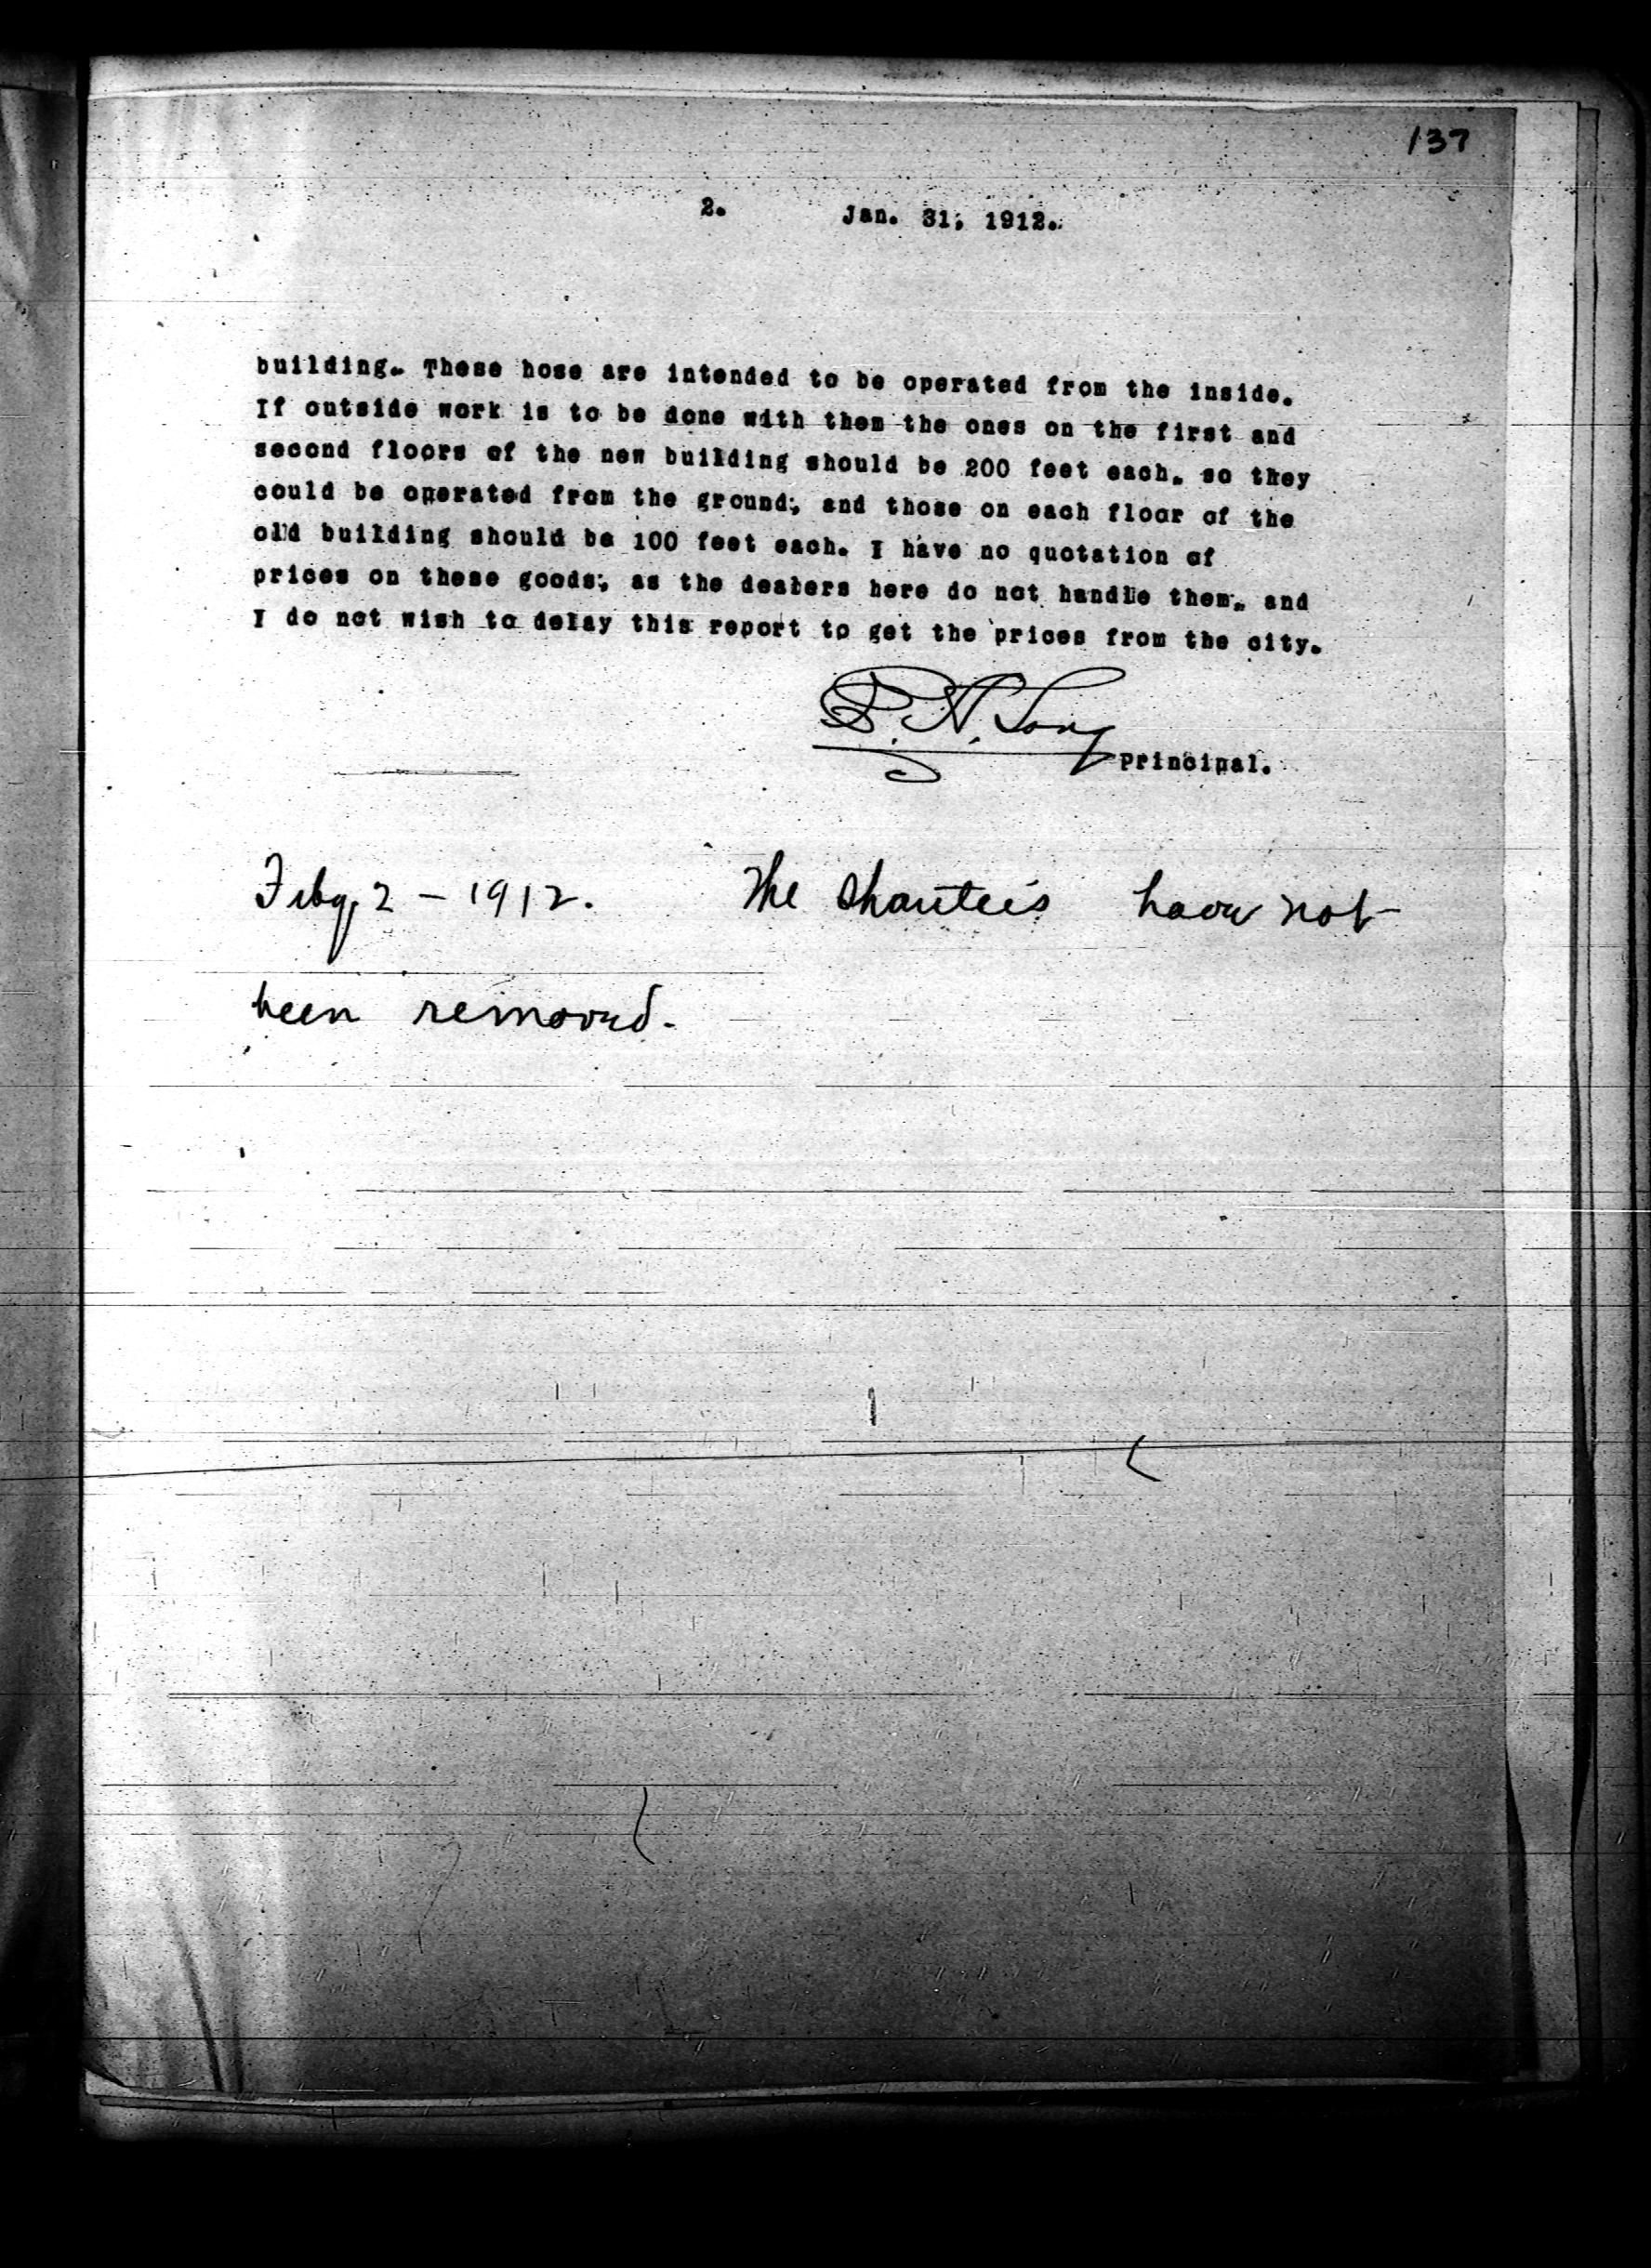 137
2. Jan. 31, 1912.
building. These hose are intended to be operated from the inside.
If outside work is to be done with them the ones on the first and
second floors of the new building should be 200 feet each, so they
could be operated from the ground, and those on each floor of the
old building should be 100 feet each. I have no quotation of
prices on these goods, as the dealers here do not handle them, and
I do not wish to delay this report to get the prices from the city.
Long
Principal.
Feby, 2 - 1912. The have not
been removed.